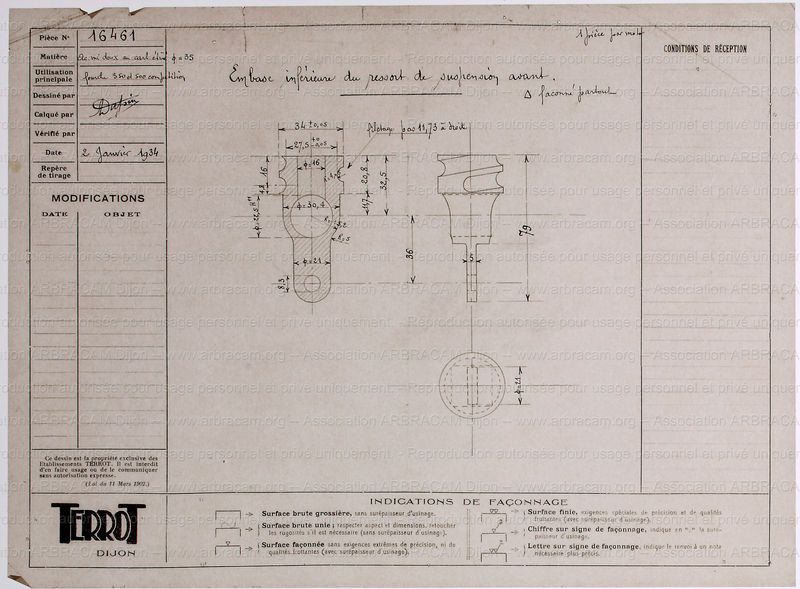 Pièce N° 16461
Matière Ac. mi doux φ = 35
Utilisation principale fourche 350 et 500 compétition
Dessiné par
Calqué par
Vérifié par
Date 2 Janvier 1934
Repère de tirage
MODIFICATIONS
DATE OBJET
1 pièce par moto
CONDITIONS DE RÉCEPTION
Embase inférieure du ressort de suspension avant.
Δ façonné partout
34 ±0,05
filetage pas 11,73 à droite
27,5
φ=16
16
4,8
20,8
32,5
11,7
φ=30,4
R=5
36
φ=21
8,3
79
5
φ=21
Ce dessin est la propriété exclusive des
Etablissements TERROT. Il est interdit
d'en faire usage ou de le communiquer
sans autorisation expresse.
(Loi du 11 Mars 1902.)
TERROT
DIJON
INDICATIONS DE FAÇONNAGE
Surface brute grossière, sans surépaisseur d'usinage.
Surface brute unie ; respecter aspect et dimensions, retoucher
les rugosités s'il est nécessaire (sans surépaisseur d'usinage).
Surface façonnée sans exigences extrêmes de précision, ni de
qualités frottantes (avec surépaisseur d'usinage).
Surface finie, exigences spéciales de précision et de qualités
frottantes (avec surépaisseur d'usinage).
Chiffre sur signe de façonnage, indique en "." la suré-
paisseur d'usinage.
Lettre sur signe de façonnage, indique le renvoi à un note
nécessaire plus précis.
Reproduction autorisée pour usage personnel et privé uniquement
Association ARBRACAM Dijon – www.arbracam.org